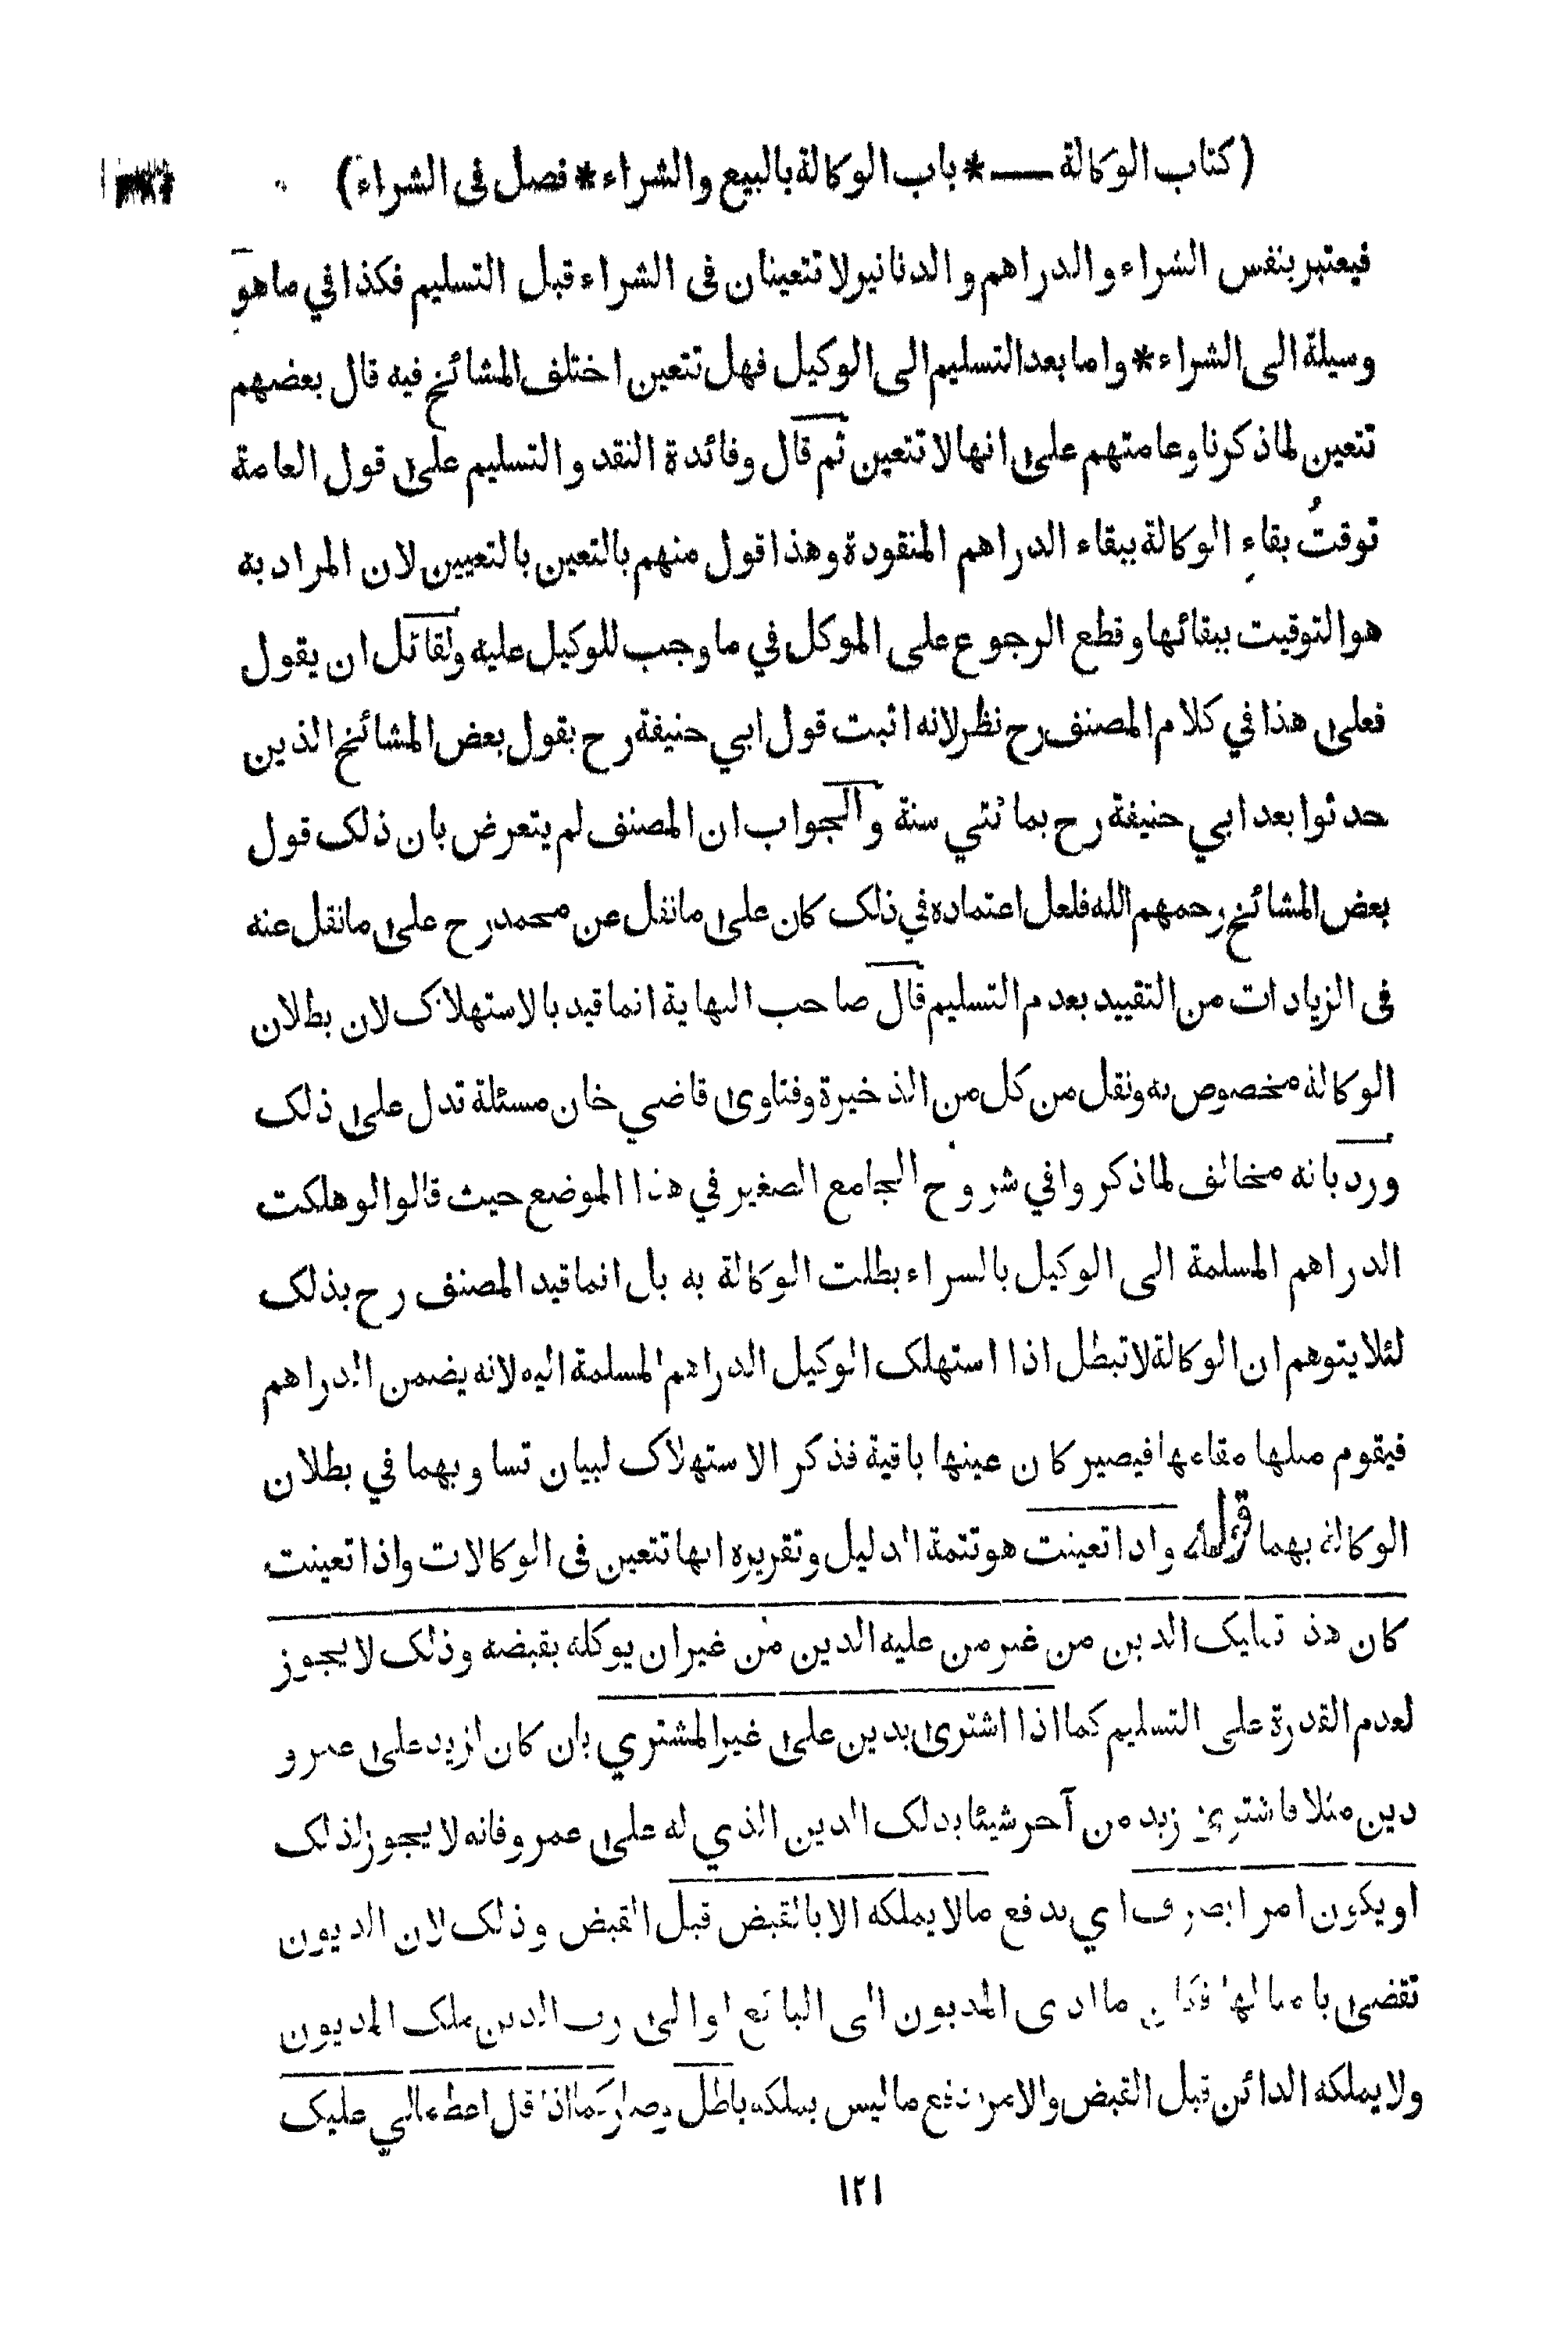 (كتاب الوكالة ـــ * باب الوكالة بالبيع والشراء * فصل فى الشراء)
فيعتبر بنفس الشراء والدراهم والدنانير لا تتعينان فى الشراء قبل التسليم فكذا في ما هو
وسيلة الى الشراء * واما بعد التسليم الى الوكيل فهل تتعين اختلف المشائخ فيه قال بعضهم
تتعين لما ذكرنا وعامتهم على انها لا تتعين ثم قال وفائدة النقد والتسليم على قول العامة
توقتُ بقاءِ الوكالة ببقاء الدراهم المنقودة وهذا قول منهم بالتعين بالتعيين لان المراد به
هو التوقيت ببقائها وقطع الرجوع على الموكل في ما وجب للوكيل عليه ولقائل ان يقول
فعلى هذا في كلام المصنف رح نظر لانه اثبت قول ابي حنيفة رح بقول بعض المشائخ الذين
حدثوا بعد ابي حنيفة رح بمائتي سنة والجواب ان المصنف لم يتعرض بان ذلك قول
بعض المشائخ رحمهم الله فلعل اعتماده في ذلك كان على ما نقل عن محمد رح على ما نقل عنه
فى الزيادات من التقييد بعدم التسليم قال صاحب النهاية انما قيد بالاستهلاك لان بطلان
الوكالة مخصوص به ونقل من كل من الذخيرة وفتاوى قاضي خان مسئلة تدل على ذلك
ورد بانه مخالف لما ذكروا في شروح الجامع الصغير في هذا الموضع حيث قالوا لو هلكت
الدراهم المسلمة الى الوكيل بالشراء بطلت الوكالة به بل انما قيد المصنف رح بذلك
لئلا يتوهم ان الوكالة لا تبطل اذا استهلك الوكيل الدراهم المسلمة اليه لانه يضمن الدراهم
فيقوم مثلها مقامها فيصير كان عينها باقية فذكر الاستهلاك لبيان تساويهما في بطلان
الوكالة بهما قوله واذا تعينت هو تتمة الدليل وتقريره انها تتعين فى الوكالات واذا تعينت
كان هذا تمليك الدين من غير من عليه الدين من غير ان يوكله بقبضه وذلك لا يجوز
لعدم القدرة على التسليم كما اذا اشترى بدين على غير المشتري بان كان لزيد على عمرو
دين مثلا فاشترى زيد من آخر شيئا بذلك الدين الذي له على عمرو فانه لا يجوز لذلك
او يكون امرا بصرف اي بدفع ما لا يملكه الا بالقبض قبل القبض وذلك لان الديون
تقضى بامثالها فكان ما ادى المديون الى البائع او الى رب الدين ملك المديون
ولا يملكه الدائن قبل القبض والامر بدفع ما ليس بملكه باطل وصار كما اذا قال اعط مالي عليك
١٢١